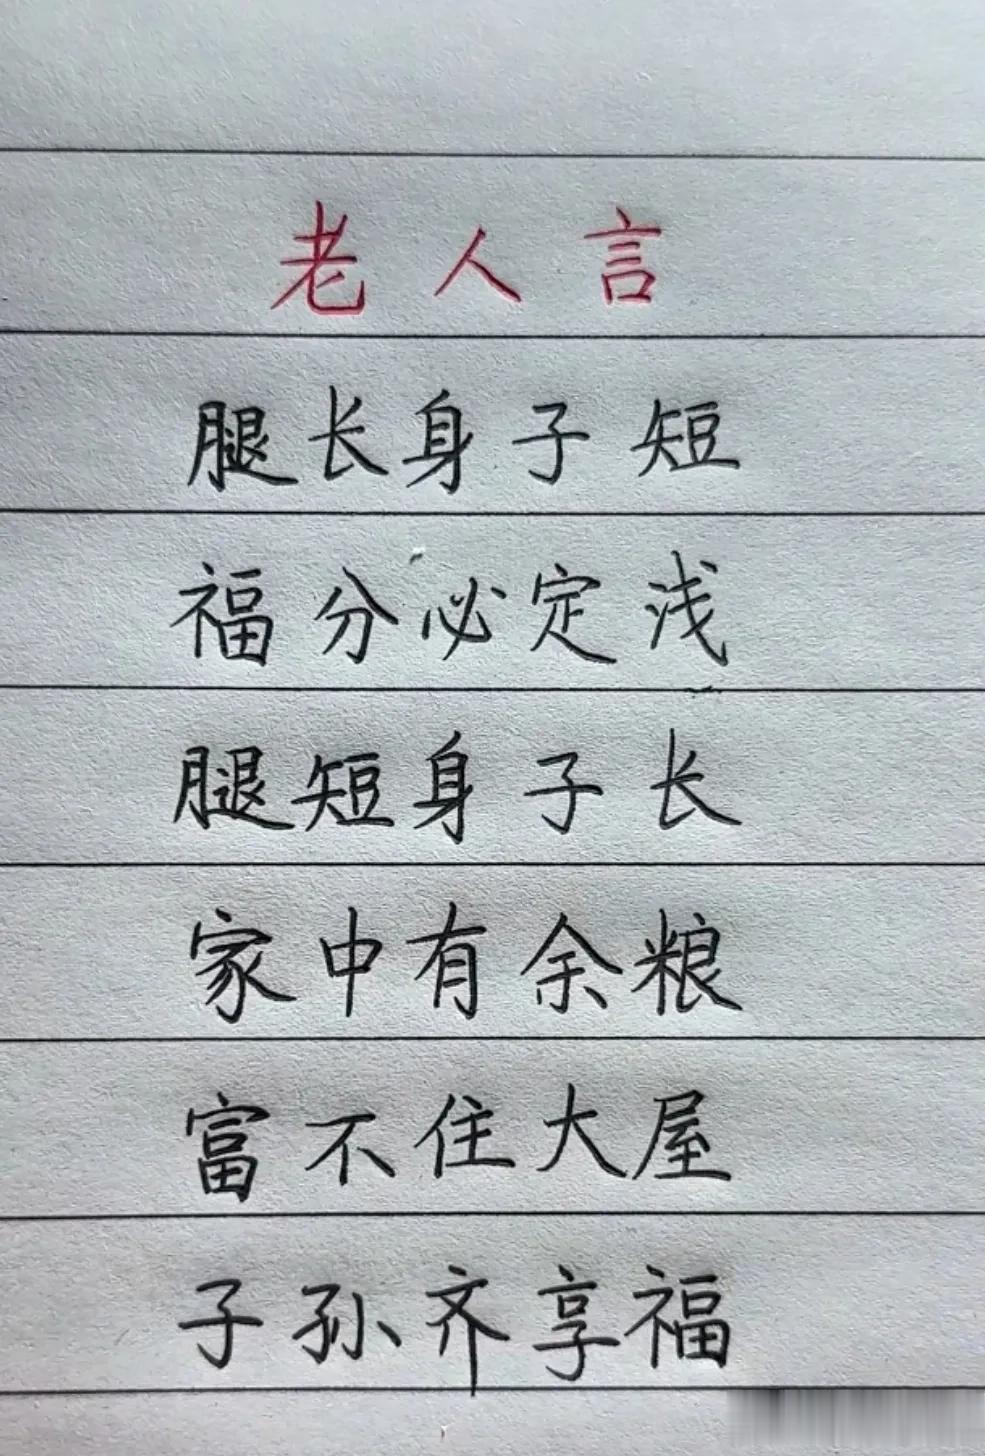 老人言
腿长身子短
福分必定浅
腿短身子长
家中有余粮
富不住大屋
子孙齐享福